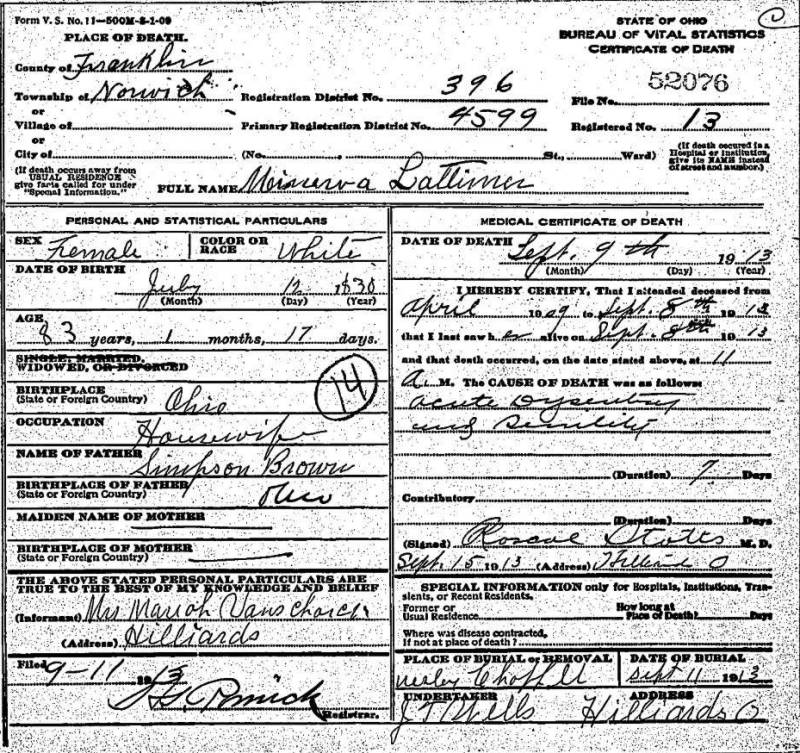 Form V. S. No. 11—500M-8-1-09
STATE OF OHIO
BUREAU OF VITAL STATISTICS
CERTIFICATE OF DEATH
PLACE OF DEATH.
County of Franklin
Township of Norwich
or
Village of
or
City of
Registration District No. 396
File No. 52076
Primary Registration District No. 4599
Registered No. 13
(No. , St., Ward)
(If death occured in a Hospital or Institution, give its NAME instead of street and number.)
(If death occurs away from USUAL RESIDENCE give facts called for under "Special Information.")
FULL NAME Minerva Lattimer
PERSONAL AND STATISTICAL PARTICULARS
SEX Female COLOR OR RACE White
DATE OF BIRTH
July 12 1830
(Month) (Day) (Year)
AGE
83 years, 1 months, 17 days.
SINGLE, MARRIED,
WIDOWED, OR DIVORCED
14
BIRTHPLACE
(State or Foreign Country) Ohio
OCCUPATION
Housewife
NAME OF FATHER
Simpson Brown
BIRTHPLACE OF FATHER
(State or Foreign Country) Ohio
MAIDEN NAME OF MOTHER
BIRTHPLACE OF MOTHER
(State or Foreign Country)
THE ABOVE STATED PERSONAL PARTICULARS ARE
TRUE TO THE BEST OF MY KNOWLEDGE AND BELIEF
(Informant) Mrs Mariah
(Address) Hilliards
Filed 9-11 1913
Registrar.
MEDICAL CERTIFICATE OF DEATH
DATE OF DEATH Sept. 9th 1913
(Month) (Day) (Year)
I HEREBY CERTIFY, That I attended deceased from
April 1909 to Sept. 8th 1913
that I last saw her alive on Sept. 8th 1913
and that death occurred, on the date stated above, at 11
A. M. The CAUSE OF DEATH was as follows:
acute Dysentery
and Senility
(Duration) 7 Days
Contributory
(Duration) Days
(Signed) Roscoe M. D.
Sept. 15 1913 (Address) O
SPECIAL INFORMATION only for Hospitals, Institutions, Transients, or Recent Residents.
Former or
Usual Residence
How long at
Place of Death? Days
Where was disease contracted,
if not at place of death?
PLACE OF BURIAL or REMOVAL
DATE OF BURIAL
Sept 11 1913
UNDERTAKER
J T Wells
ADDRESS
Hilliards O